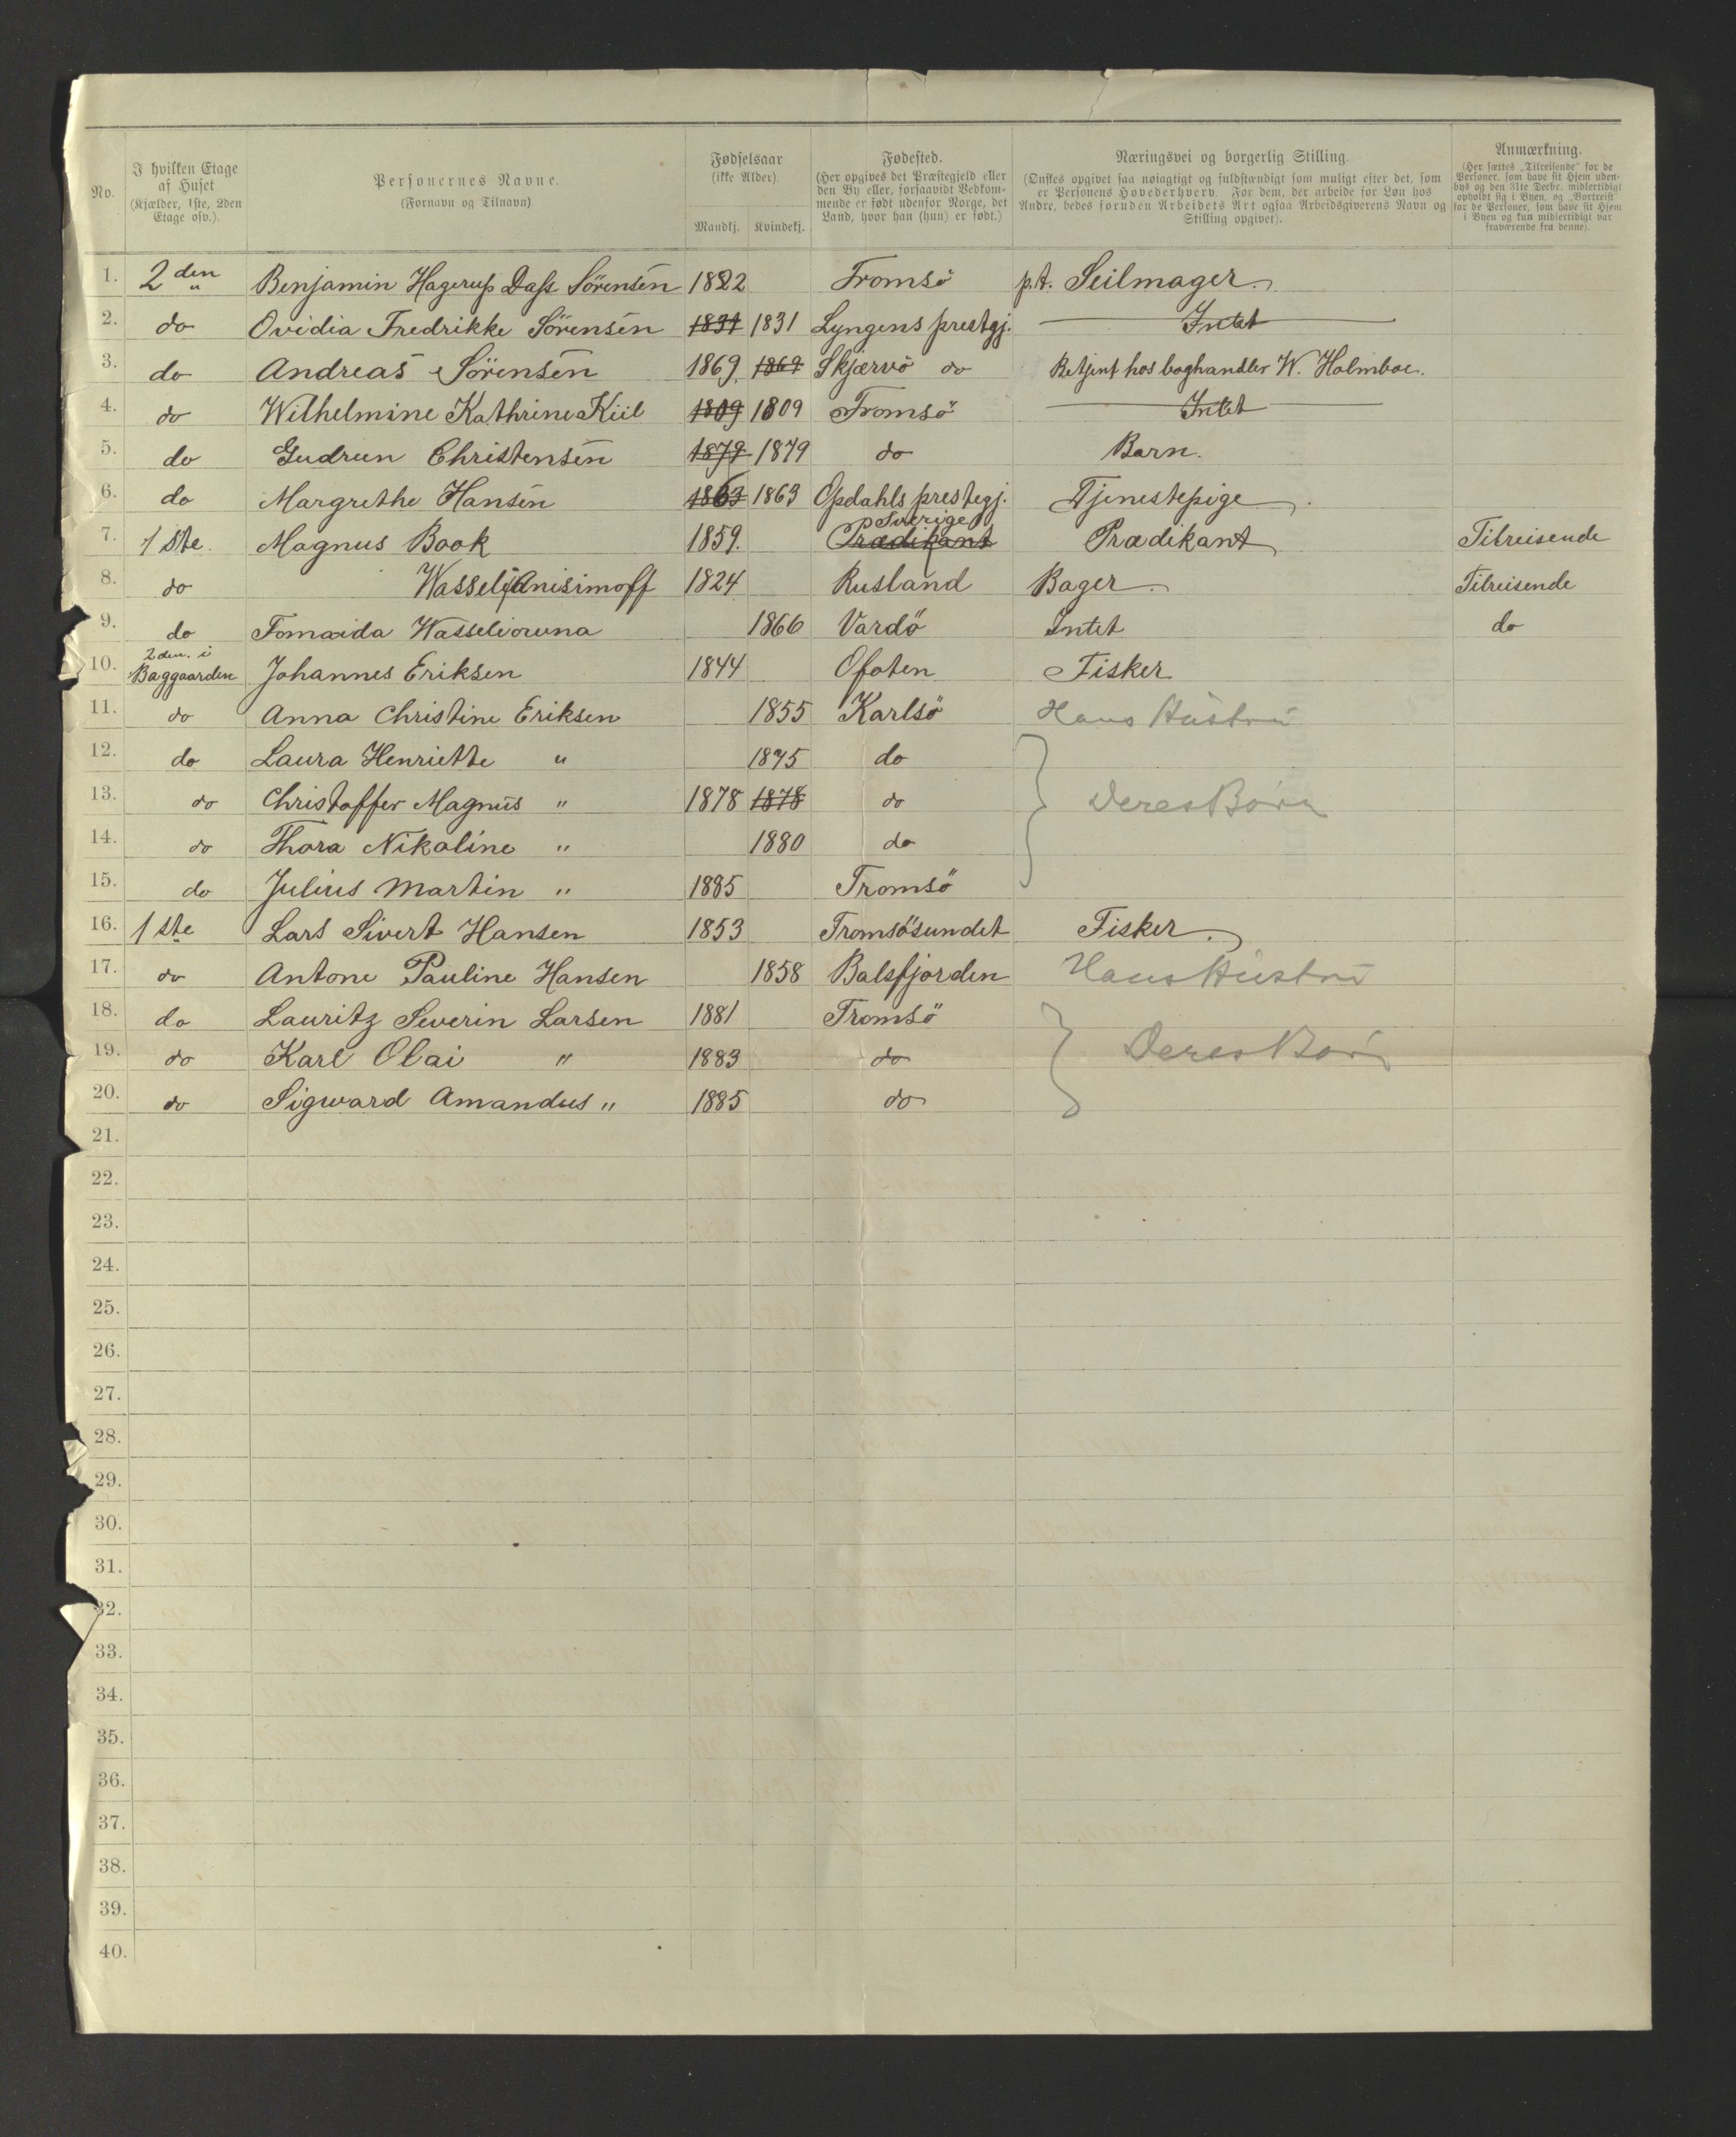 No.
I hvilken Etage
af Huset
(Kjælder, 1ste, 2den
Etage osv.).
Personernes Navne.
(Fornavn og Tilnavn)
Fødselsaar
(ikke Alder).
Mandkj. Kvindekj.
Fødested.
(Her opgives det Præstegjeld eller
den By eller, forsaavidt Vedkom-
mende er født udenfor Norge, det
Land, hvor han (hun) er født.)
Næringsvei og borgerlig Stilling.
(Ønskes opgivet saa nøiagtigt og fuldstændigt som muligt efter det, som
er Personens Hovederhverv. For dem, der arbeide for Løn hos
Andre, bedes foruden Arbeidets Art ogsaa Arbeidsgiverens Navn og
Stilling opgivet).
Anmærkning.
(Her sættes „Tilreisende" for de
Personer, som have sit Hjem uden-
bys og den 31te Decbr. midlertidigt
opholdt sig i Byen, og „Bortreist"
for de Personer, som have sit Hjem
i Byen og kun midlertidigt var
fraværende fra denne).
1. 2den Benjamin Hagerup Dass Sörensen 1822 Tromsö p.t. Seilmager.
2. do Ovidia Fredrikke Sörensen 1831 1831 Lyngens prestgj. Intet
3. do Andreas Sörensen 1869. 1869 Skjærvö do Betjent hos boghandler W. Holmboe.
4. do Wilhelmine Kathrine Kiil 1809 1809 Tromsö Intet
5. do Gudrun Christensen 1879 1879 do Barn.
6. do Margrethe Hansen 1863 1863 Opdahls prestegj. Tjenestepige
Sverige
7. 1ste. Magnus Book 1859. Prædikant Prædikant Tilreisende
8. do Wasselij Anisimoff 1824 Rusland Bager Tilreisende
9. do Fomaida Wasseliovna 1866 Vardö Intet do
2den. i
10. Baggaarden Johannes Eriksen 1844 Ofoten Fisker
11. do Anna Christine Eriksen 1855 Karlsö Hans Hustru
12. do Laura Henriette " 1875 do
13. do Christoffer Magnus " 1878 1878 do Deres Börn
14. do Thora Nikoline " 1880 do
15. do Julius Martin " 1885 Tromsö
16. 1ste Lars Sivert Hansen 1853 Tromsösundet Fisker.
17. do Antone Pauline Hansen 1858 Balsfjorden Hans Hustru
18. do Lauritz Severin Larsen 1881 Tromsö
19. do Karl Olai " 1883 do Deres Börn
20. do Sigward Amandus " 1885 do
21.
22.
23.
24.
25.
26.
27.
28.
29.
30.
31.
32.
33.
34.
35.
36.
37.
38.
39.
40.